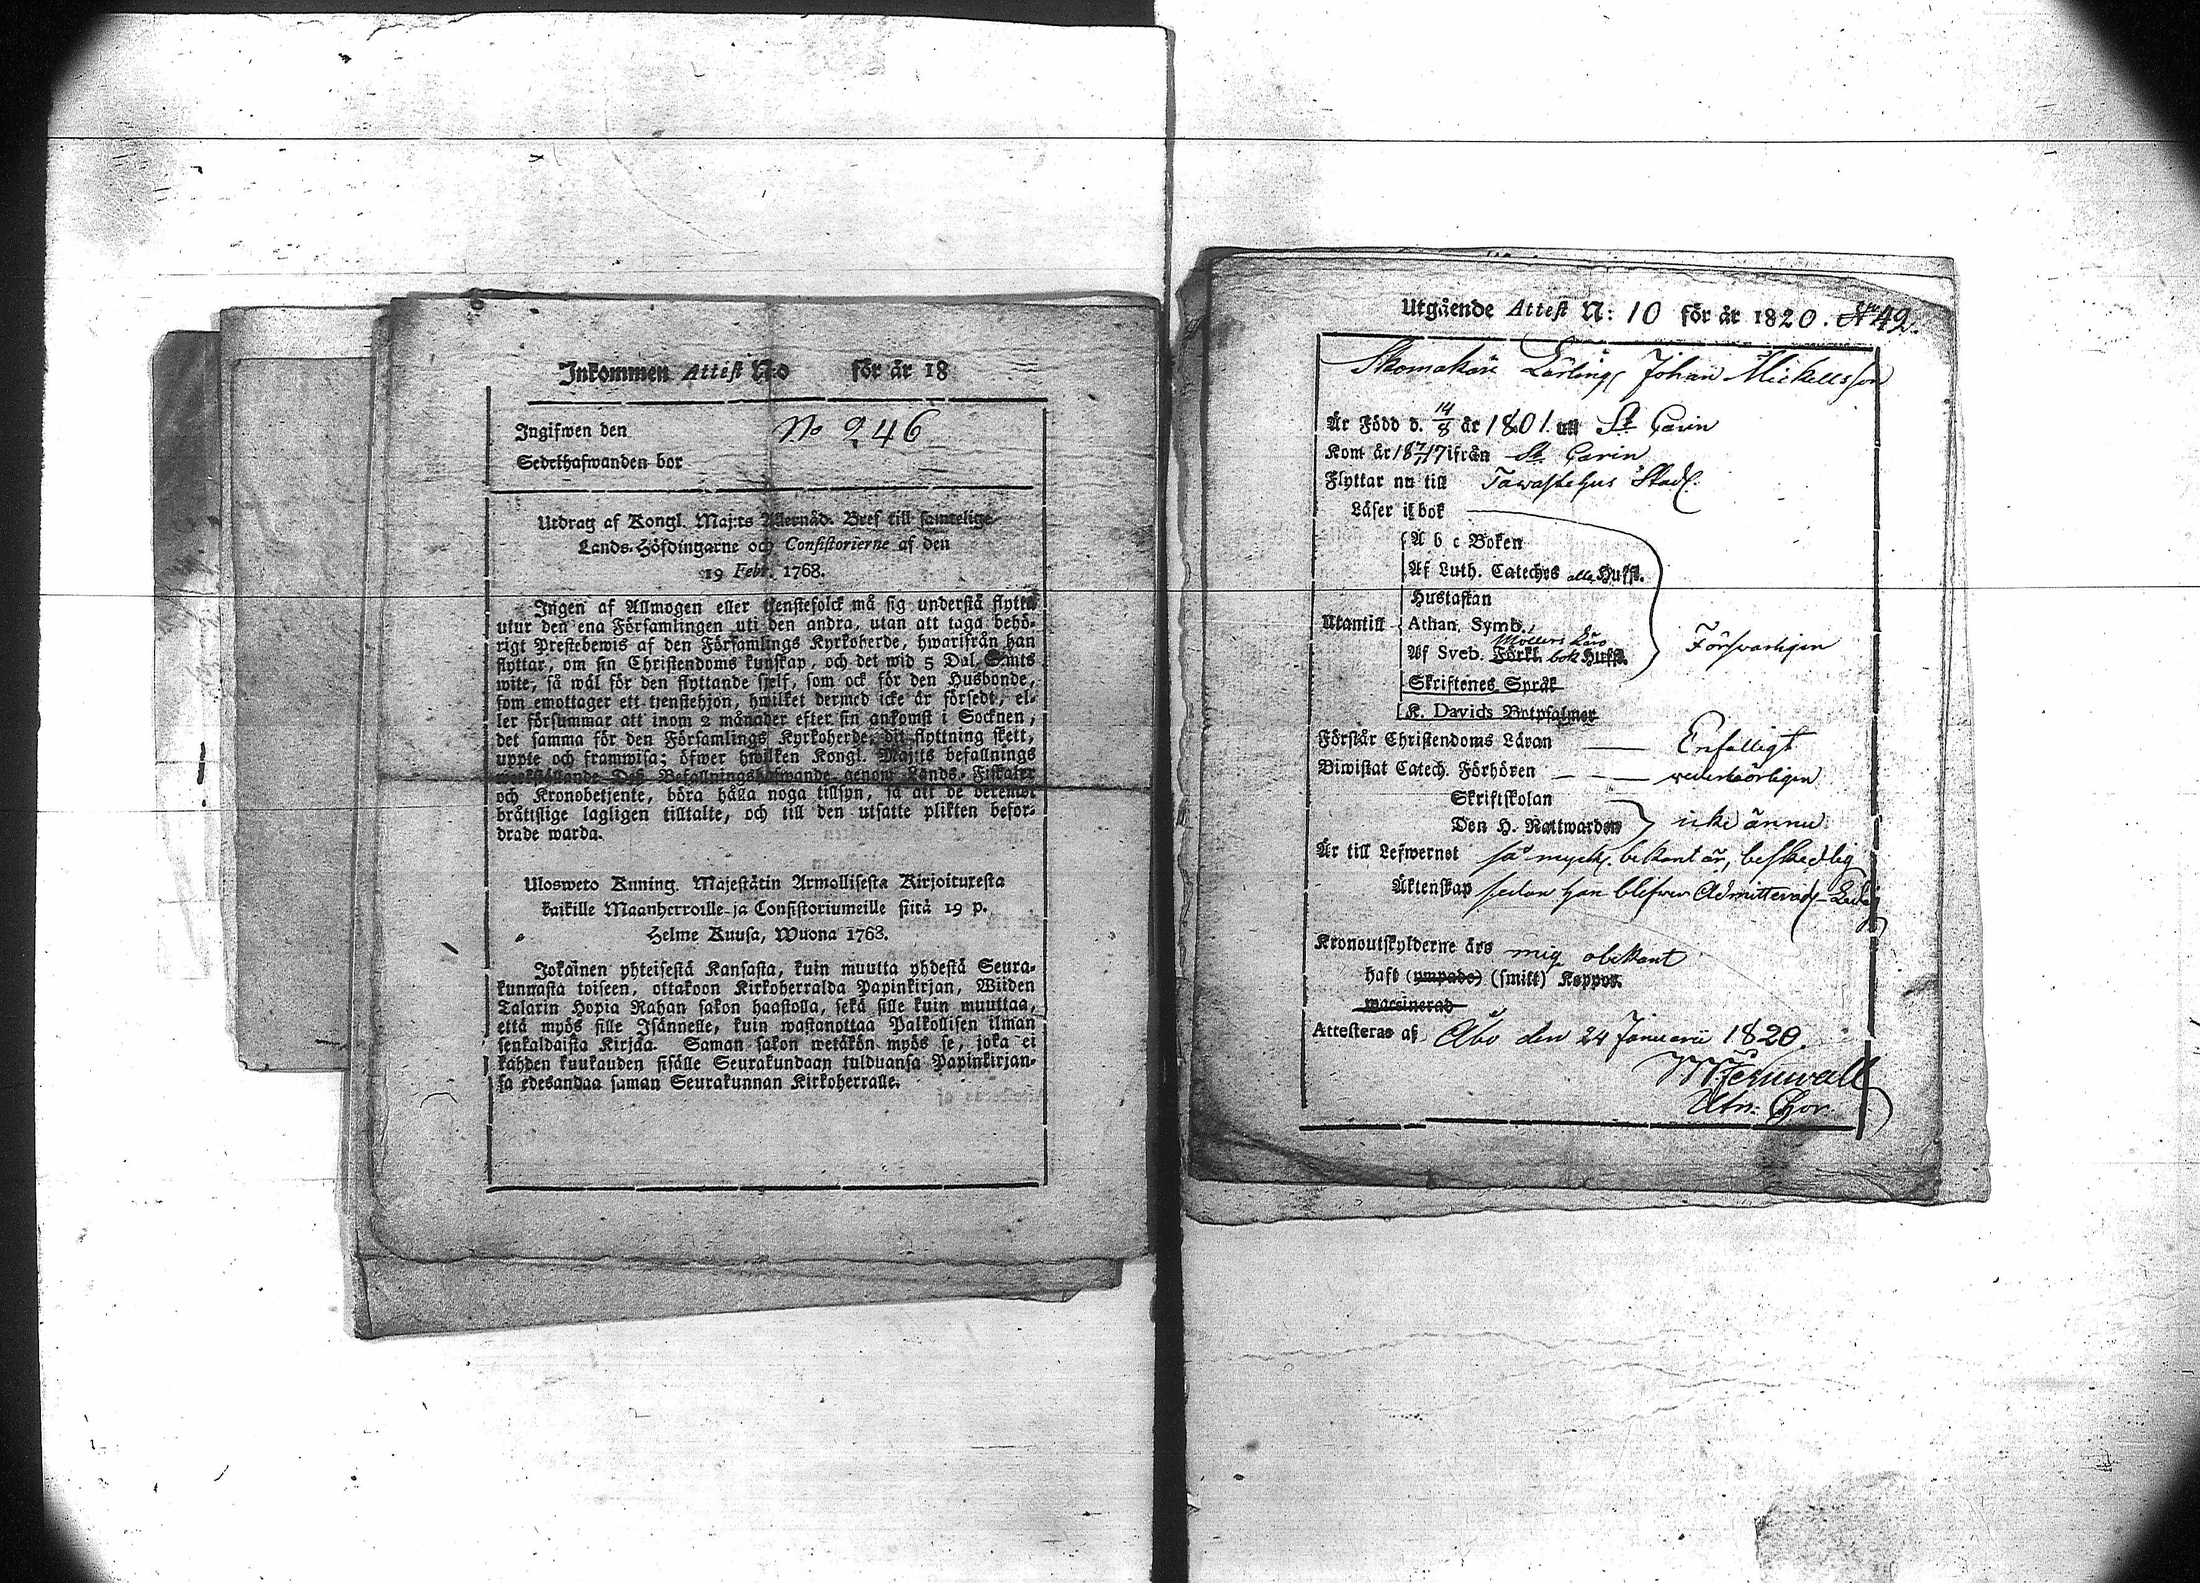 Inkommen Attest N:o för år 18
Ingifwen den No 246
Sedelhafwanden bor
Utdrag af Kongl. Maj:ts Allernåd. Bref till samtelige
Lands-Höfdingarne och Consistorierne af den
19 Febr. 1768.
Ingen af Allmogen eller tjenstefolck må sig understå flytta
utur den ena Församlingen uti den andra, utan att taga behö-
rigt Prestebewis af den Församlings Kyrkoherde, hwarifrån han
flyttar, om sin Christendoms kunskap, och det wid 5 Dal. S:mts
wite, så wäl för den flyttande sjelf, som ock för den Husbonde,
som emottager ett tjenstehjon, hwilket dermed icke är försedt, el-
ler försummar att inom 2 månader efter sin ankomst i Socknen,
det samma för den Församlings Kyrkoherde, dit flyttning skett,
uppte och framwisa; öfwer hwilken Kongl. Maj:tts befallnings
werkställande Deß Befallningshafwande genom Lands-Fiskaler
och Kronobetjente, böra hålla noga tillsyn, så att de deremot
bråttslige lagligen tilltalte, och till den utsatte plikten befor-
drade warda.
Ulosweto Kuning. Majestätin Armollisesta Kirjoituxesta
kaikille Maanherroille ja Consistoriumeille siitä 19 p.
Helme Kuusa, Wuona 1768.
Jokainen yhteisestä Kansasta, kuin muutta yhdestä Seura-
kunnasta toiseen, ottakoon Kirkoherralda Papinkirjan, Wiiden
Talarin Hopia Rahan sakon haastolla, sekä sille kuin muuttaa,
että myös sille Isännelle, kuin wastanottaa Palkollisen ilman
senkaldaista Kirjaa. Saman sakon wetäkön myös se, joka ei
kahden kuukauden sisälle Seurakundaan tulduansa Papinkirjan-
sa edesandaa saman Seurakunnan Kirkoherralle.
Utgående Attest N: 10 för år 1820. No 42.
Skomakare Lärling Johan Mickellsson
Är Född d. 14/8 år 1801. till St Carin
Kom år 1817 ifrån St Carin
Flyttar nu till Tawastehus Stad.
Läser i bok
A b c Boken
Af Luth. Cateches alla Hufst.
Hustaflan
Utantill Athan. Symb.
Möllers Läro
Af Sveb. Förkl. bok Hufst. Försvarligen
Skriftenes Språk
K. Davids Botpsalmer
Förstår Christendoms Läran Enfalligt
Biwistat Catech. Förhören wederbörligen
Skriftskolan
Den H. Nattwarden icke ännu
Är till Lefwernet så myck. bekant är, beskedlig
Äktenskap sedan han blifwer Admitterad - Ledig
Kronoutskylderne äro mig obekant
Haft (ympade) (smitt) Koppor.
waccinerad
Attesteras af Åbo den 24 Januarii 1820.